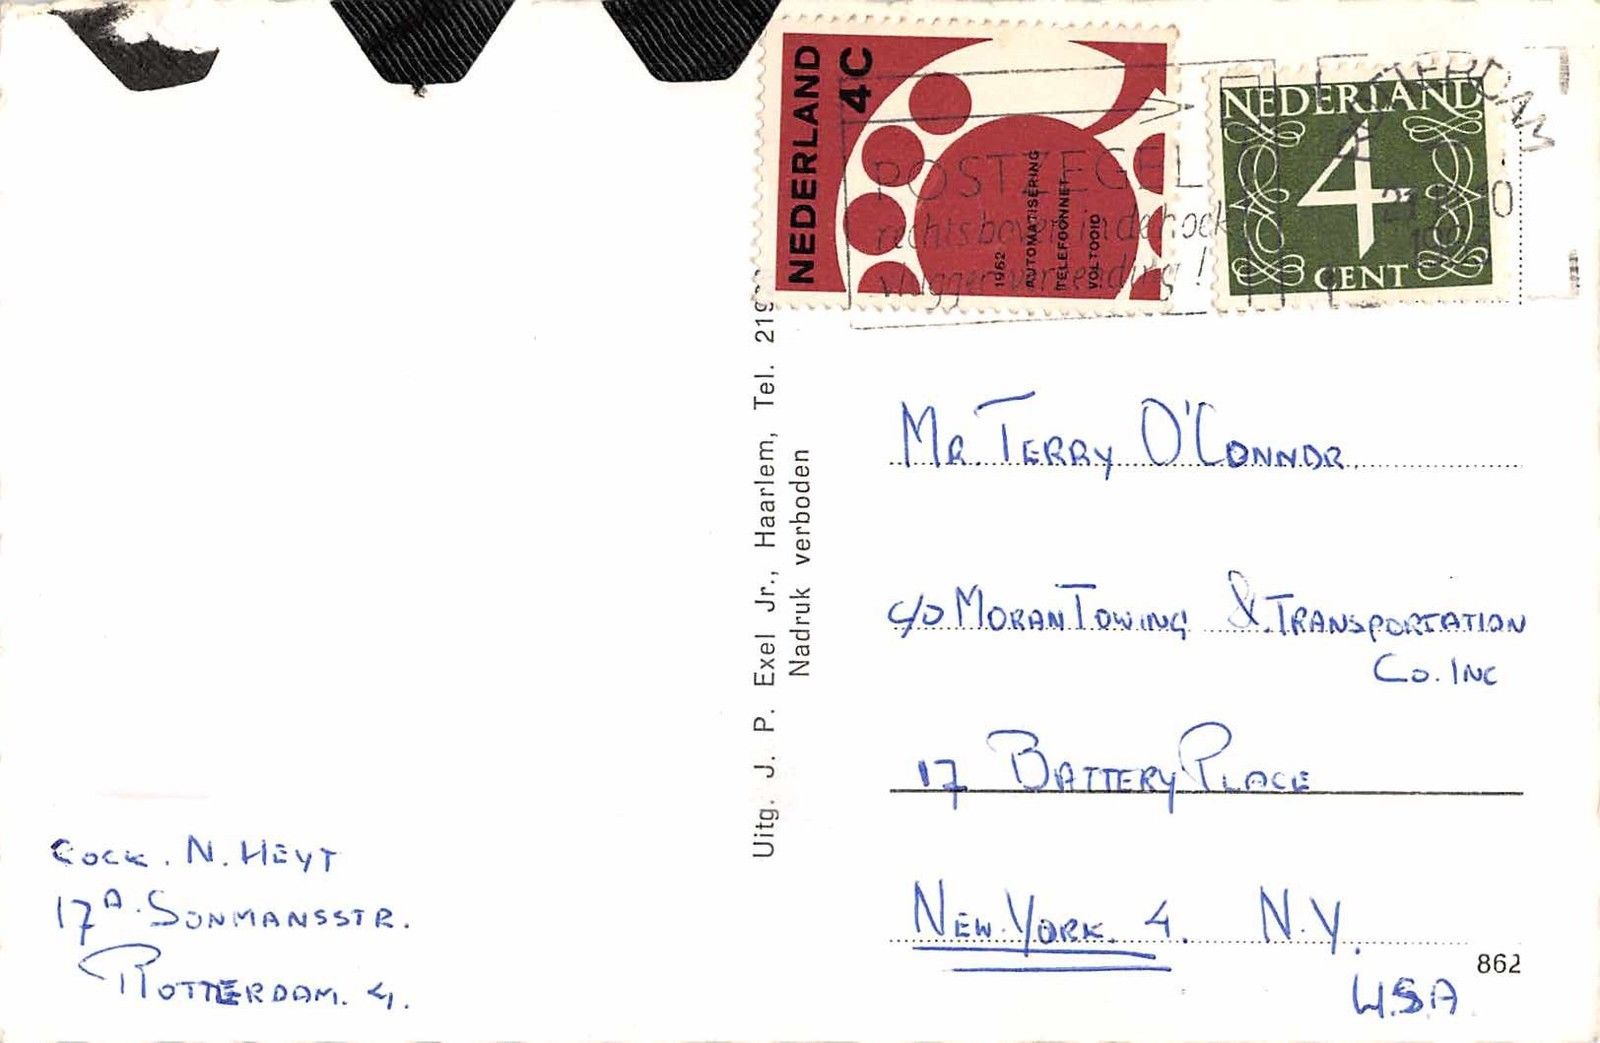 NEDERLAND
4C
1962
AUTOMATISERING
TELEFOONNET
VOLTOOID
NEDERLAND
4
CENT
POSTZEGEL
rechtsboven in de hoek
vlugger verzending!
Uitg. J. P. Exel Jr., Haarlem, Tel.
Nadruk verboden
MR. TERRY O'CONNOR
C/O MORAN TOWING & TRANSPORTATION
CO. INC
17 BATTERY PLACE
NEW YORK. 4. N.Y.
U.S.A
862
COCK. N. HEYT
17A. SONMANSSTR.
ROTTERDAM. 4.